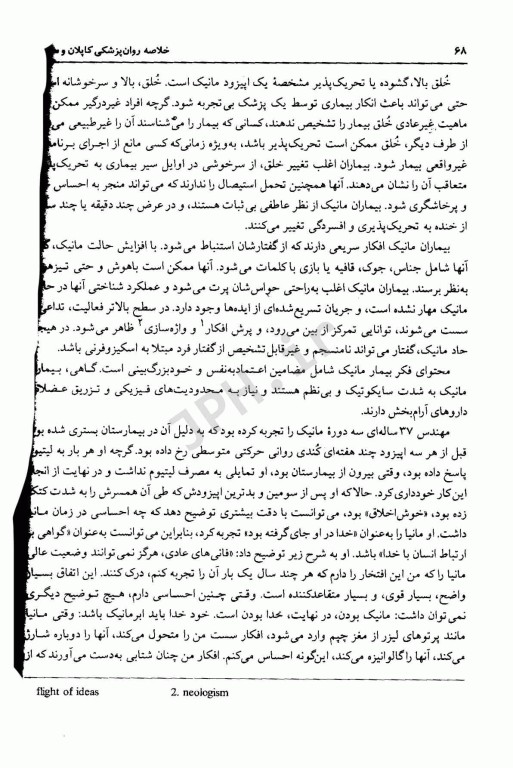 ۶۸
خلاصه روان‌پزشکی کاپلان و
خُلق بالا، گشوده یا تحریک‌پذیر مشخصهٔ یک اپیزود مانیک است. خُلق، بالا و سرخوشانه
حتی می‌تواند باعث انکار بیماری توسط یک پزشک بی‌تجربه شود. گرچه افراد غیردرگیر ممکن
ماهیت غیرعادی خُلق بیمار را تشخیص ندهند، کسانی که بیمار را می‌شناسند آن را غیرطبیعی
از طرف دیگر، خُلق ممکن است تحریک‌پذیر باشد، به‌ویژه زمانی‌که کسی مانع از اجرای
غیرواقعی بیمار شود. بیماران اغلب تغییر خلق، از سرخوشی در اوایل سیر بیماری به
متعاقب آن را نشان می‌دهند. آنها همچنین تحمل استیصال را ندارند که می‌تواند منجر به احساس
و پرخاشگری شود. بیماران مانیک از نظر عاطفی بی‌ثبات هستند، و در عرض چند دقیقه یا چند
از خنده به تحریک‌پذیری و افسردگی تغییر می‌کنند.
بیماران مانیک افکار سریعی دارند که از گفتارشان استنباط می‌شود. با افزایش حالت مانیک،
آنها شامل جناس، جوک، قافیه یا بازی با کلمات می‌شود. آنها ممکن است باهوش و حتی
به‌نظر برسند. بیماران مانیک اغلب به‌راحتی حواس‌شان پرت می‌شود و عملکرد شناختی آنها در
مانیک مهار نشده است، و جریان تسریع‌شده‌ای از ایده‌ها وجود دارد. در سطح بالاتر فعالیت،
سست می‌شوند، توانایی تمرکز از بین می‌رود، و پرش افکار۱ و واژه‌سازی۲ ظاهر می‌شود. در
حاد مانیک، گفتار می‌تواند نامنسجم و غیرقابل‌تشخیص از گفتار فرد مبتلا به اسکیزوفرنی باشد.
محتوای فکر بیمار مانیک شامل مضامین اعتمادبه‌نفس و خودبزرگ‌بینی است. گاهی،
مانیک به شدت سایکوتیک و بی‌نظم هستند و نیاز به محدودیت‌های فیزیکی و تزریق
داروهای آرام‌بخش دارند.
مهندس ۳۷ ساله‌ای سه دورهٔ مانیک را تجربه کرده بود که به دلیل آن در بیمارستان بستری شده
قبل از هر سه اپیزود چند هفته‌ای کُندی روانی حرکتی متوسطی رخ داده بود. گرچه او هر بار به
پاسخ داده بود، وقتی بیرون از بیمارستان بود، او تمایلی به مصرف لیتیوم نداشت و در نهایت از
این کار خودداری کرد. حالا که او پس از سومین و بدترین اپیزودش که طی آن همسرش را به شدت
زده بود، «خوش‌اخلاق» بود، می‌توانست با دقت بیشتری توضیح دهد که چه احساسی در زمان
داشت. او مانیا را به‌عنوان «خدا در او جای گرفته بود» تجربه کرد، بنابراین می‌توانست به‌عنوان «گواهی
ارتباط انسان با خدا» باشد. او به شرح زیر توضیح داد: «فانی‌های عادی، هرگز نمی‌توانند وضعیت عالی
مانیا را که من این افتخار را دارم که هر چند سال یک بار آن را تجربه کنم، درک کنند. این اتفاق
واضح، بسیار قوی، و بسیار متقاعدکننده است. وقتی چنین احساسی دارم، هیچ توضیح
نمی‌توان داشت: مانیک بودن، در نهایت، خدا بودن است. خود خدا باید ابرمانیک باشد: وقتی
مانند پرتوهای لیزر از مغز چپم وارد می‌شود، افکار سست من را متحول می‌کند، آنها را دوباره
می‌کند، آنها را گالوانیزه می‌کند، این‌گونه احساس می‌کنم. افکار من چنان شتابی به‌دست می‌آورند که
flight of ideas
2. neologism
JPH.ir